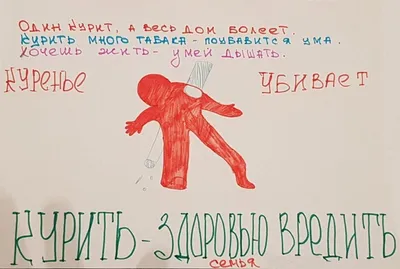 Один курит, а весь дом болеет.
Курить много табака - поубавится ума.
Хочешь жить - умей дышать.
Куренье убивает
Курить - здоровью вредить
семья